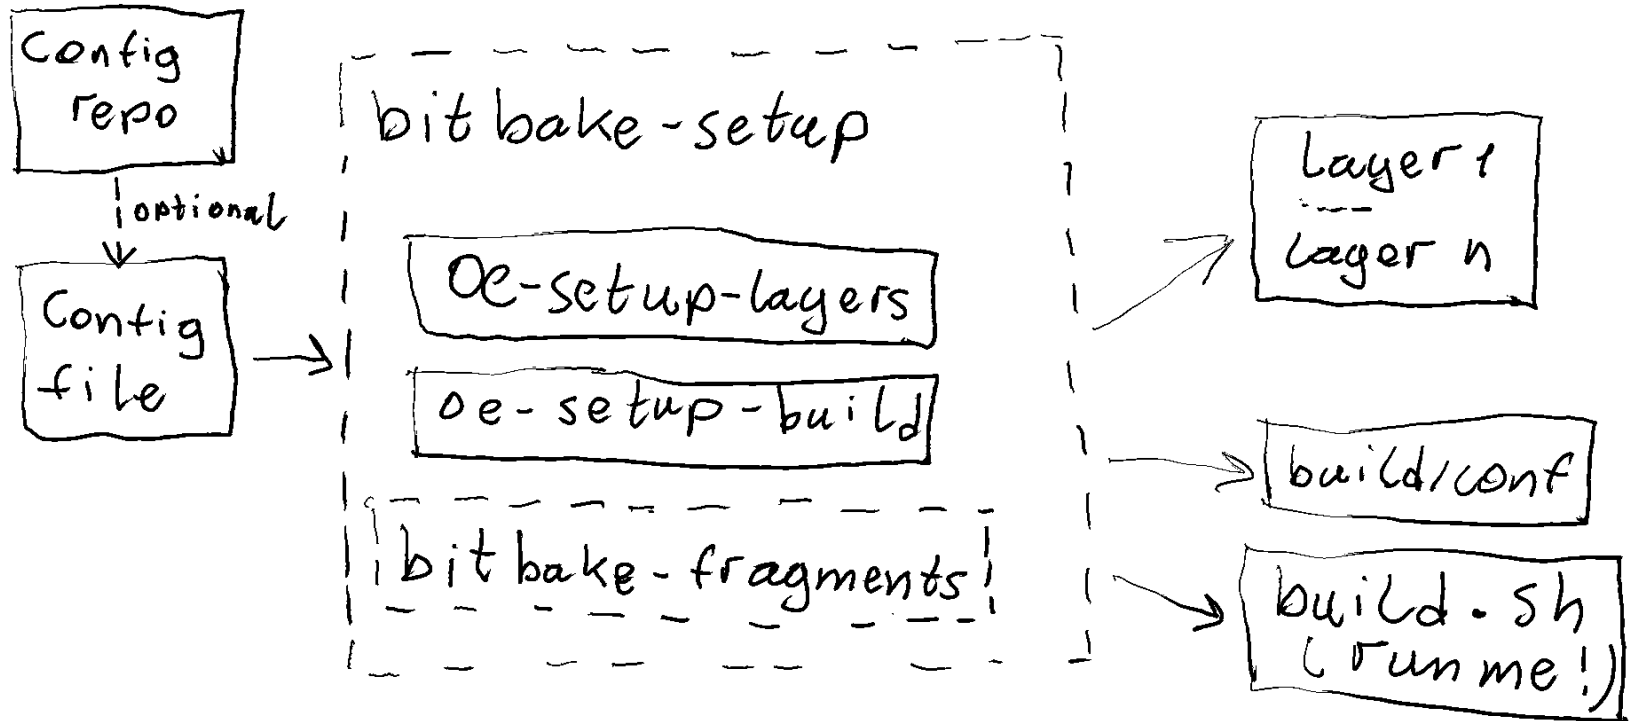 Config
repo
optional
Config
file
bitbake-setup
oe-setup-layers
oe-setup-build
bitbake-fragments
Layer 1
Layer n
build/conf
build.sh
(run me!)